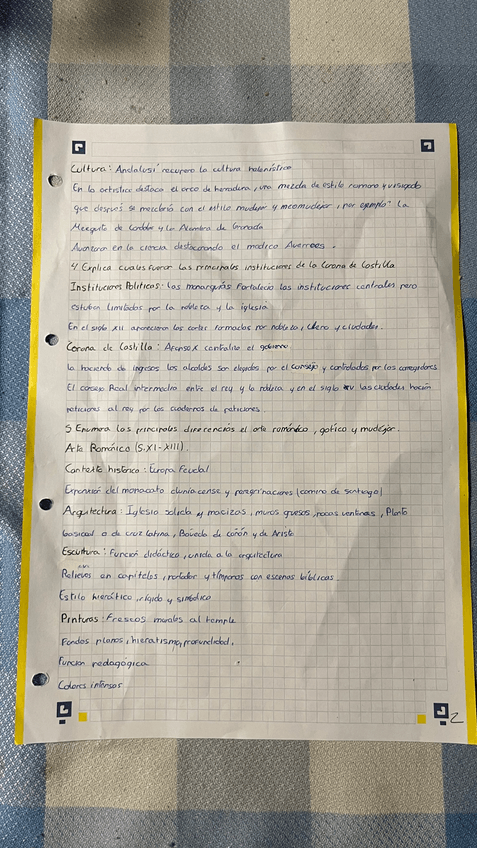 Cultura: Andalusí recupero la cultura helenística
En la artistica destaca el arco de herradura, una mezcla de estilo romano y visigodo
que después se mezclaría con el estilo mudejar y neomudejar, por ejemplo" la
Mezquita de Cordoba y la Alambra de Granada
Avanzaron en la ciencia destacando el medico Averroes.
4 Explica cuales fueron las principales instituciones de la Corona de Castilla
Instituciones Politicas: Las monarquías fortalecio las instituciones centrales pero
estuban limitadas por la nobleza y la iglesia
En el siglo XII aparecieron las cortes formados por nobleza, clero y ciudades.
Corona de Castilla: Alfonso X centralizo el gobierno.
la hacienda de ingresos, los alcaldes son elegidos por el consejo y controlados por los corregidores
El consejo Real intermedia entre el rey y la nobleza y en el siglo XV las ciudades hacían
peticiones al rey por los cuadernos de peticiones.
5 Enumera las principales diferencias el arte románico, gotico y mudejar.
Arte Románico (S.XI-XIII).
Contexto historico: Europa Feudal
Expansión del monacato cluniacense y peregrinaciones (camino de santiago)
Arquitectura: Iglesia solida y macizas, muros gruesos, pocas ventanas, Planta
basilical o de cruz latina, Bóveda de cañón y de Arista
Escultura: Función didáctica, unida a la arquitectura
Relieves en capiteles, portadas y tímpanos con escenas bíblicas
Estilo hierático, rígido y simbólico
Pinturas: Frescos murales al temple
Fondos planos, hieratismo, profundidad.
Funcion pedagogica
Colores intensos
2